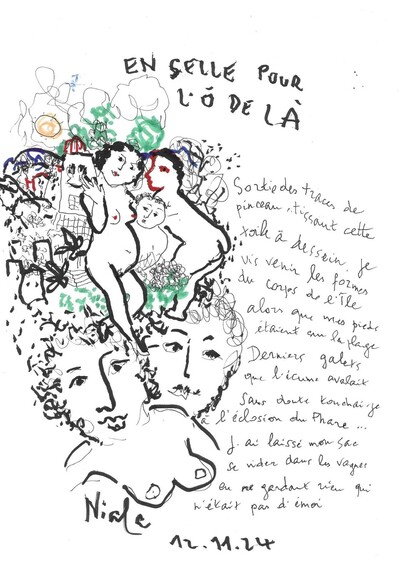 EN SELLE POUR
L'Ô DE LÀ
Sortie des traces de
pinceau, tissant cette
toile à dessein, je
vis venir les formes
du corps de l'Île
alors que mes pieds
étaient sur la plage
Derniers galets
que l'écume avalait
Sans doute touchai-je
à l'éclosion du Phare...
J'ai laissé mon sac
se vider dans les vagues
en ne gardant rien qui
n'était pas d'émoi
Niala
12.11.24